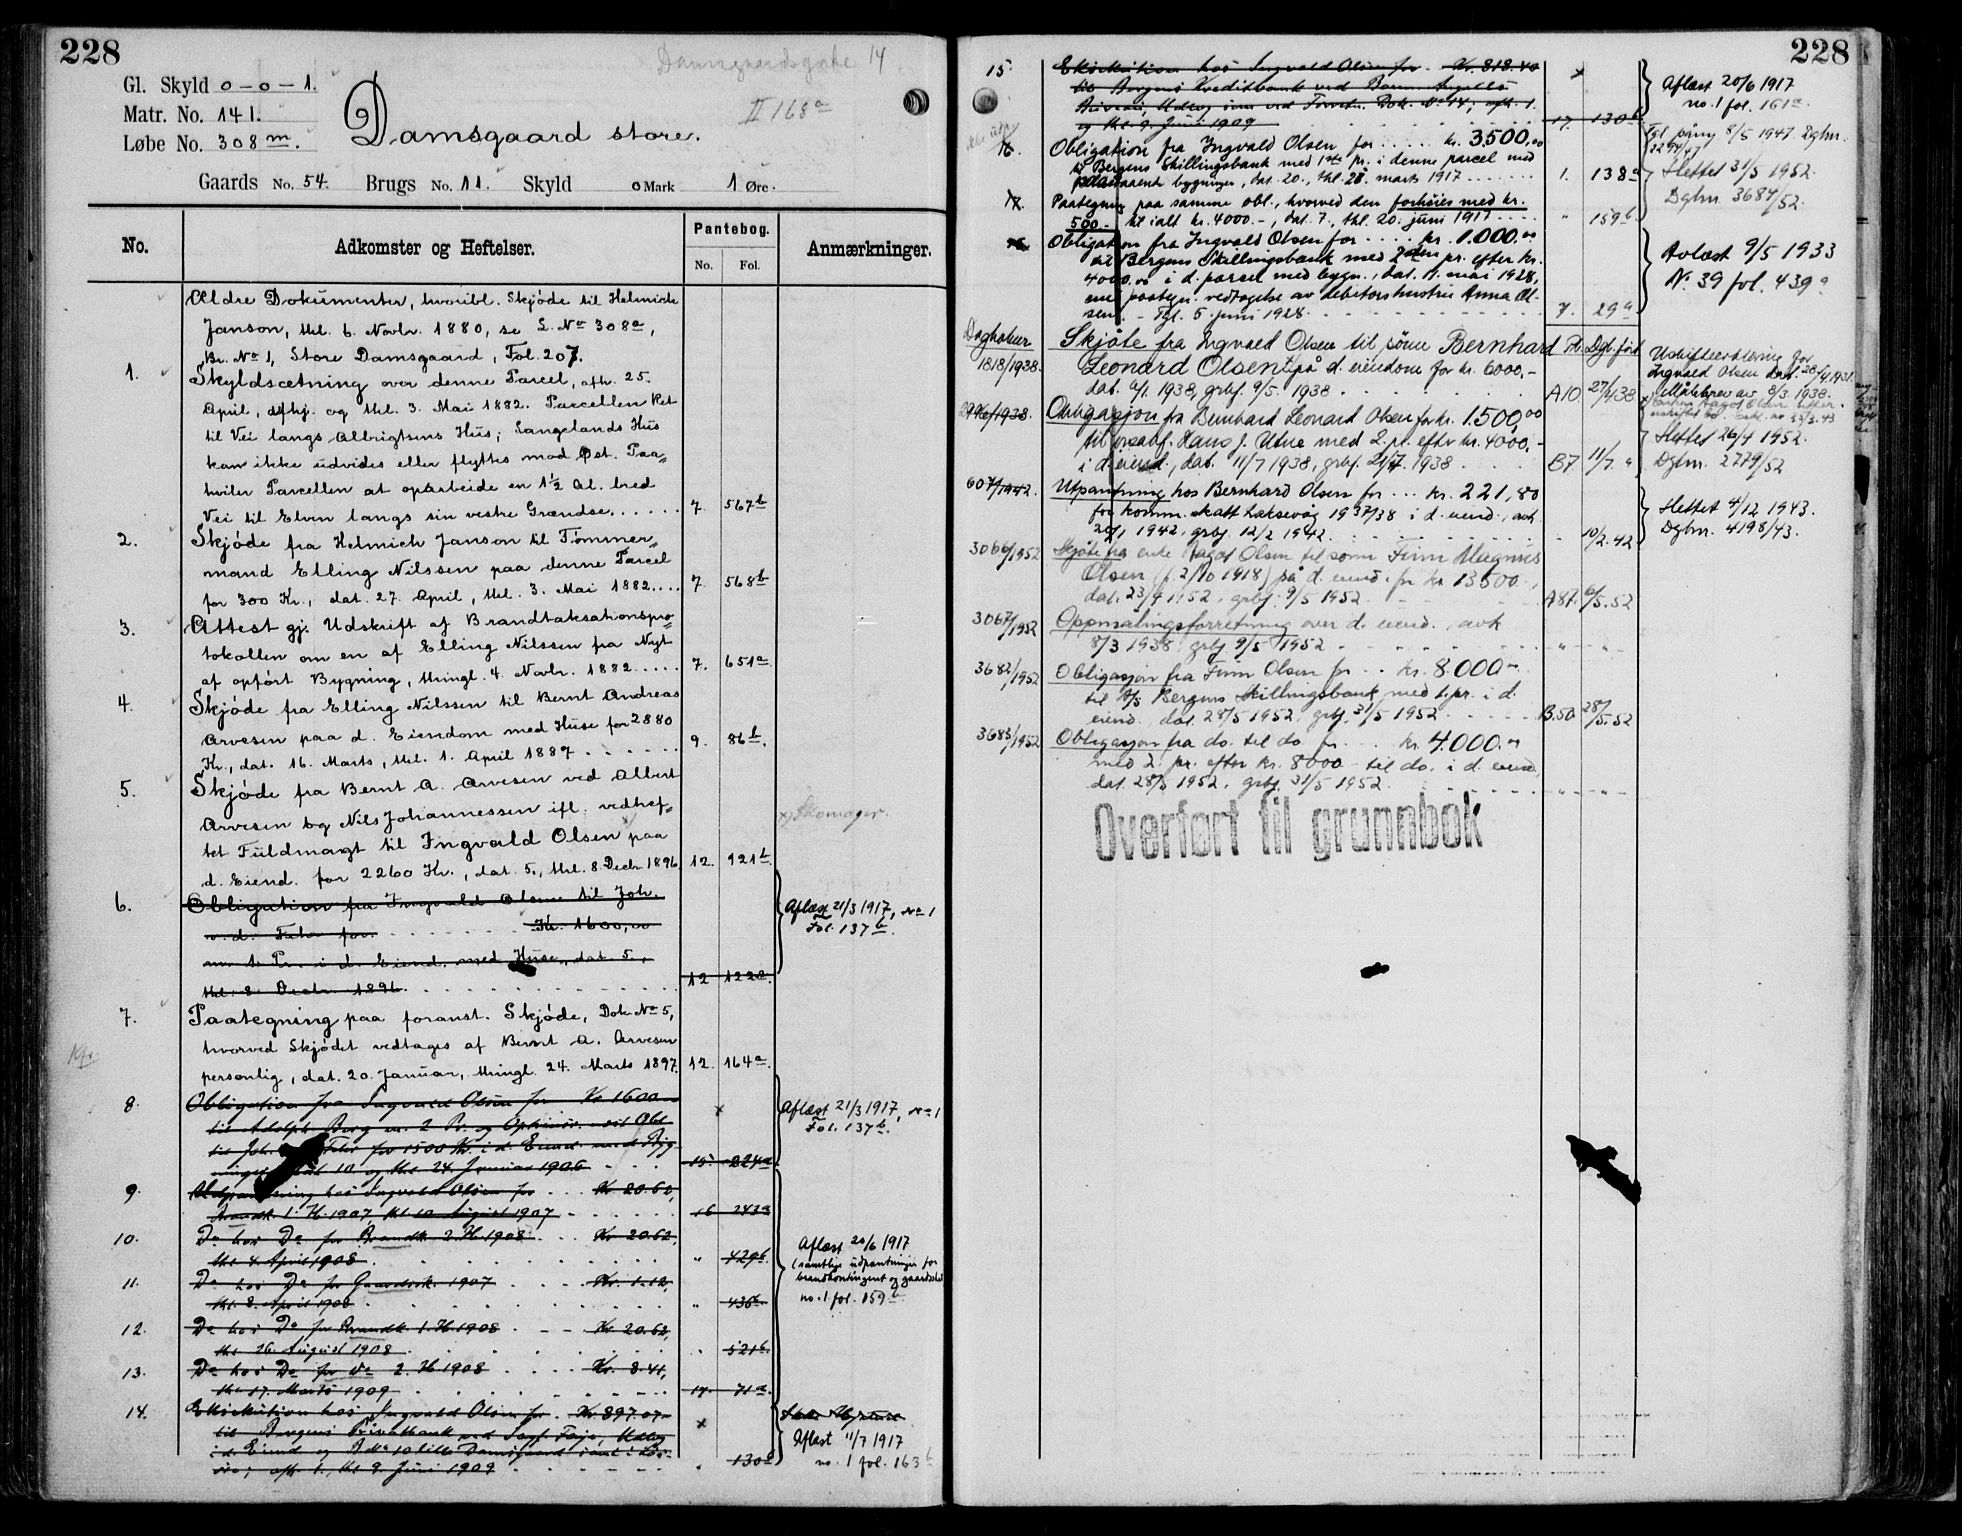 228
Damsgaardsgate 14
Gl. Skyld 0-0-1.
Matr. No. 141.
Løbe No. 308 m.
Damsgaard store.
II 168a
Gaards No. 54. Brugs No. 11. Skyld 0 Mark 1 Øre.
No.
Adkomster og Heftelser.
Pantebog.
No. Fol.
Anmærkninger.
Ældre Dokumenter, hvoribl. Skjøde til Helmich
Janson, thl. 6. Novbr. 1880, se L. No 308a,
Br. No 1, Store Damsgaard, Fol. 207.
1. Skyldsætning over denne Parcel, afh. 25.
April, afhj. og thl. 3. Mai 1882. Parcellen Ret
til Vei langs Albrigtsens Hus; Langelands Hus
kan ikke udvides eller flyttes mod Øst. Paa=
hviler Parcellen at oparbeide en 1½ Al. bred
Vei til Elven langs sin vestre Grændse. 7. 567b
2. Skjøde fra Helmich Janson til Tømmer=
mand Elling Nilssen paa denne Parcel
for 300 Kr., dat. 27. April, thl. 3. Mai 1882.... 7. 568b
3. Attest gj. Udskrift af Brandtaksationspro=
tokollen om en af Elling Nilssen fra Nyt
af opført Bygning, thingl. 4. Novbr. 1882..... 7. 651a
4. Skjøde fra Elling Nilssen til Bernt Andreas
Arvesen paa d. Eiendom med Huse for 2880
Kr., dat. 16. Marts, thl. 1. April 1887 9. 86b.
5. Skjøde fra Bernt A. Arvesen ved Albert
Arvesen og Nils Johannessen ifl. vedhef=
tet Fuldmagt til Ingvald Olsen x) paa
d. Eiend. for 2260 Kr., dat. 5., thl. 8. Decbr 1896 12. 121b.
x) Skomager.
6. Obligation fra Ingvald Olsen til Joh.
v. d. Fehr for Kr. 1600,00
m. 1. Pr. i d. Eiend. med Huse, dat. 5.,
thl. 8. Decbr. 1896. 12 122a.
Aflæst 21/3 1917, No 1
Fol. 137b.
7. Paategning paa foranst. Skjøde, Dok No 5,
hvorved Skjødet vedtages af Bernt A. Arvesen
personlig, dat. 20. Januar, thingl. 24. Marts 1897. 12. 164a.
8. Obligation fra Ingvald Olsen for Kr 1600 -
til Adolph Berg m. 2 Pr. og Opkrivr. ved Obl
til Joh. Fehr for 1500 Kr. i d. Eiend. med Byg=
ninger, dat 10. og thl. 24. Januar 1906 15. 224a
Aflæst 21/3 1917, No 1
Fol. 137b.
9. Udpantning hos Ingvald Olsen for Kr 20.62,
Brandk. 1. H. 1907, thl 10 August 1907 16 243a
10. Do hos Do for Brandk 2 H 1908 Kr 20.62,
thl 4. April 1908 " 429b
11. Do hos Do for Gaardsk. 1907 Kr. 1.12,
thl. 8. April 1908 " 436b
12. Do hos Do for Brandk. 1. H. 1908 Kr 20.62,
thl 26 August 1908 " 521b
13. Do hos Do for do 2. H 1908 Kr. 8.41,
thl 17. Marts 1909 17 71a
Aflæst 20/6 1917
(samtlige udpantninger for
brandkontingent og gaardsskat
no. 1 fol. 159b.
14. Eksekution hos Ingvald Olsen for Kr 897.07
til Bergens Privatbank ved Sagf. Faye, Udlæg
i d. Eiend og B.No 10 lille Damsgaard samt i Løs=
øre; afh. 1., thl 9. Juni 1909 " 130b
Aflæst 11/7 1917
no. 1 fol. 163b
Kfr.
228
15. Eksekution hos Ingvald Olsen for Kr. 818.40
til Bergens Kreditbank ved
Udlæg som ved Foranst. Dok. No 14; afh. 1.
og thl. 9. Juni 1909 17. 130b
Aflæst 20/6 1917
no. 1 fol. 161a
16. Obligation fra Ingvald Olsen for kr. 3500,00
til Bergens Skillingsbank med 1ste pr. i denne parcel med
paastaaende bygninger, dat. 20., thl. 28. marts 1917 1. 138a
Tgl. påny 8/5 1947. Dgbnr.
2294/47
Slettet 31/5 1952.
Dgbnr 3684/52.
17. Paategning paa samme obl., hvorved den forhøies med kr.
500.- til ialt kr. 4000.-, dat. 7., thl. 20. juni 1917 " 159b
Obligation fra Ingvald Olsen for kr. 1.000.00
til Bergens Skillingsbank med 2den pr. efter kr.
4000.00 i d. parcel med bygn., dat. 11. mai 1928,
med paategn. vedtagelse av debitors hustru Anna Ol-
sen. - Tgl. 5. juni 1928 7. 29a
Avlæst 9/5 1933
No. 39 fol. 439a
Dagboknr
1818/1938. Skjøte fra Ingvald Olsen til sønn Bernhard
Leonard Olsen på d. eiendom for kr. 6000,-
dat. 1938, grbf. 9/5 1938
Dgb. ført
A10. 27/4 38
Uskifteerklæring for
Ingvald Olsen
Målebrev av 8/3. 1938.
Obligasjon fra Bernhard Leonard Olsen for kr. 1.500,00
til Hans J. Utne med 2. pr. efter kr. 4000,-
i d. eiend., dat. 11/7 1938, grbf. 21/7. 1938 B7. 11/7. "
Slettet 26/4 1952.
Dgbnr. 2779/52
607/1942. Utpantning hos Bernhard Olsen for kr. 221,80
for komm. skatt Laksevåg 1937/38 i d. eiend., avh.
20/1 1942, grbf. 12/2 1942. 10/2. 42
Slettet 4/12 1943.
Dgbnr. 4198/43.
3066/1952 Skjøte fra enke Aagot Olsen til sønn Finn Magnus
Olsen (f. 2/10 1918) på d. eiend. for kr 13500.-,
dat. 23/4 1952, grbf. 9/5 1952 A 87. 6/5.52
3067/1952 Oppmålingsforretning over d. eiend., avh
8/3 1938, grbf 9/5 1952 " - " -
3682/1952 Obligasjon fra Finn Olsen for kr. 8.000,-
til A/s Bergens Skillingsbank med 1. pr. i d.
eiend., dat. 28/5 1952, grbf. 31/5 1952 B.50. 28/5.52
3683/1952 Obligasjon fra do. til do. for kr. 4.000,-
med 2. pr. efter kr. 8000 til do. i d. eiend.
dat. 28/5 1952, grbf. 31/5 1952. " - " -
Overført til grunnbok